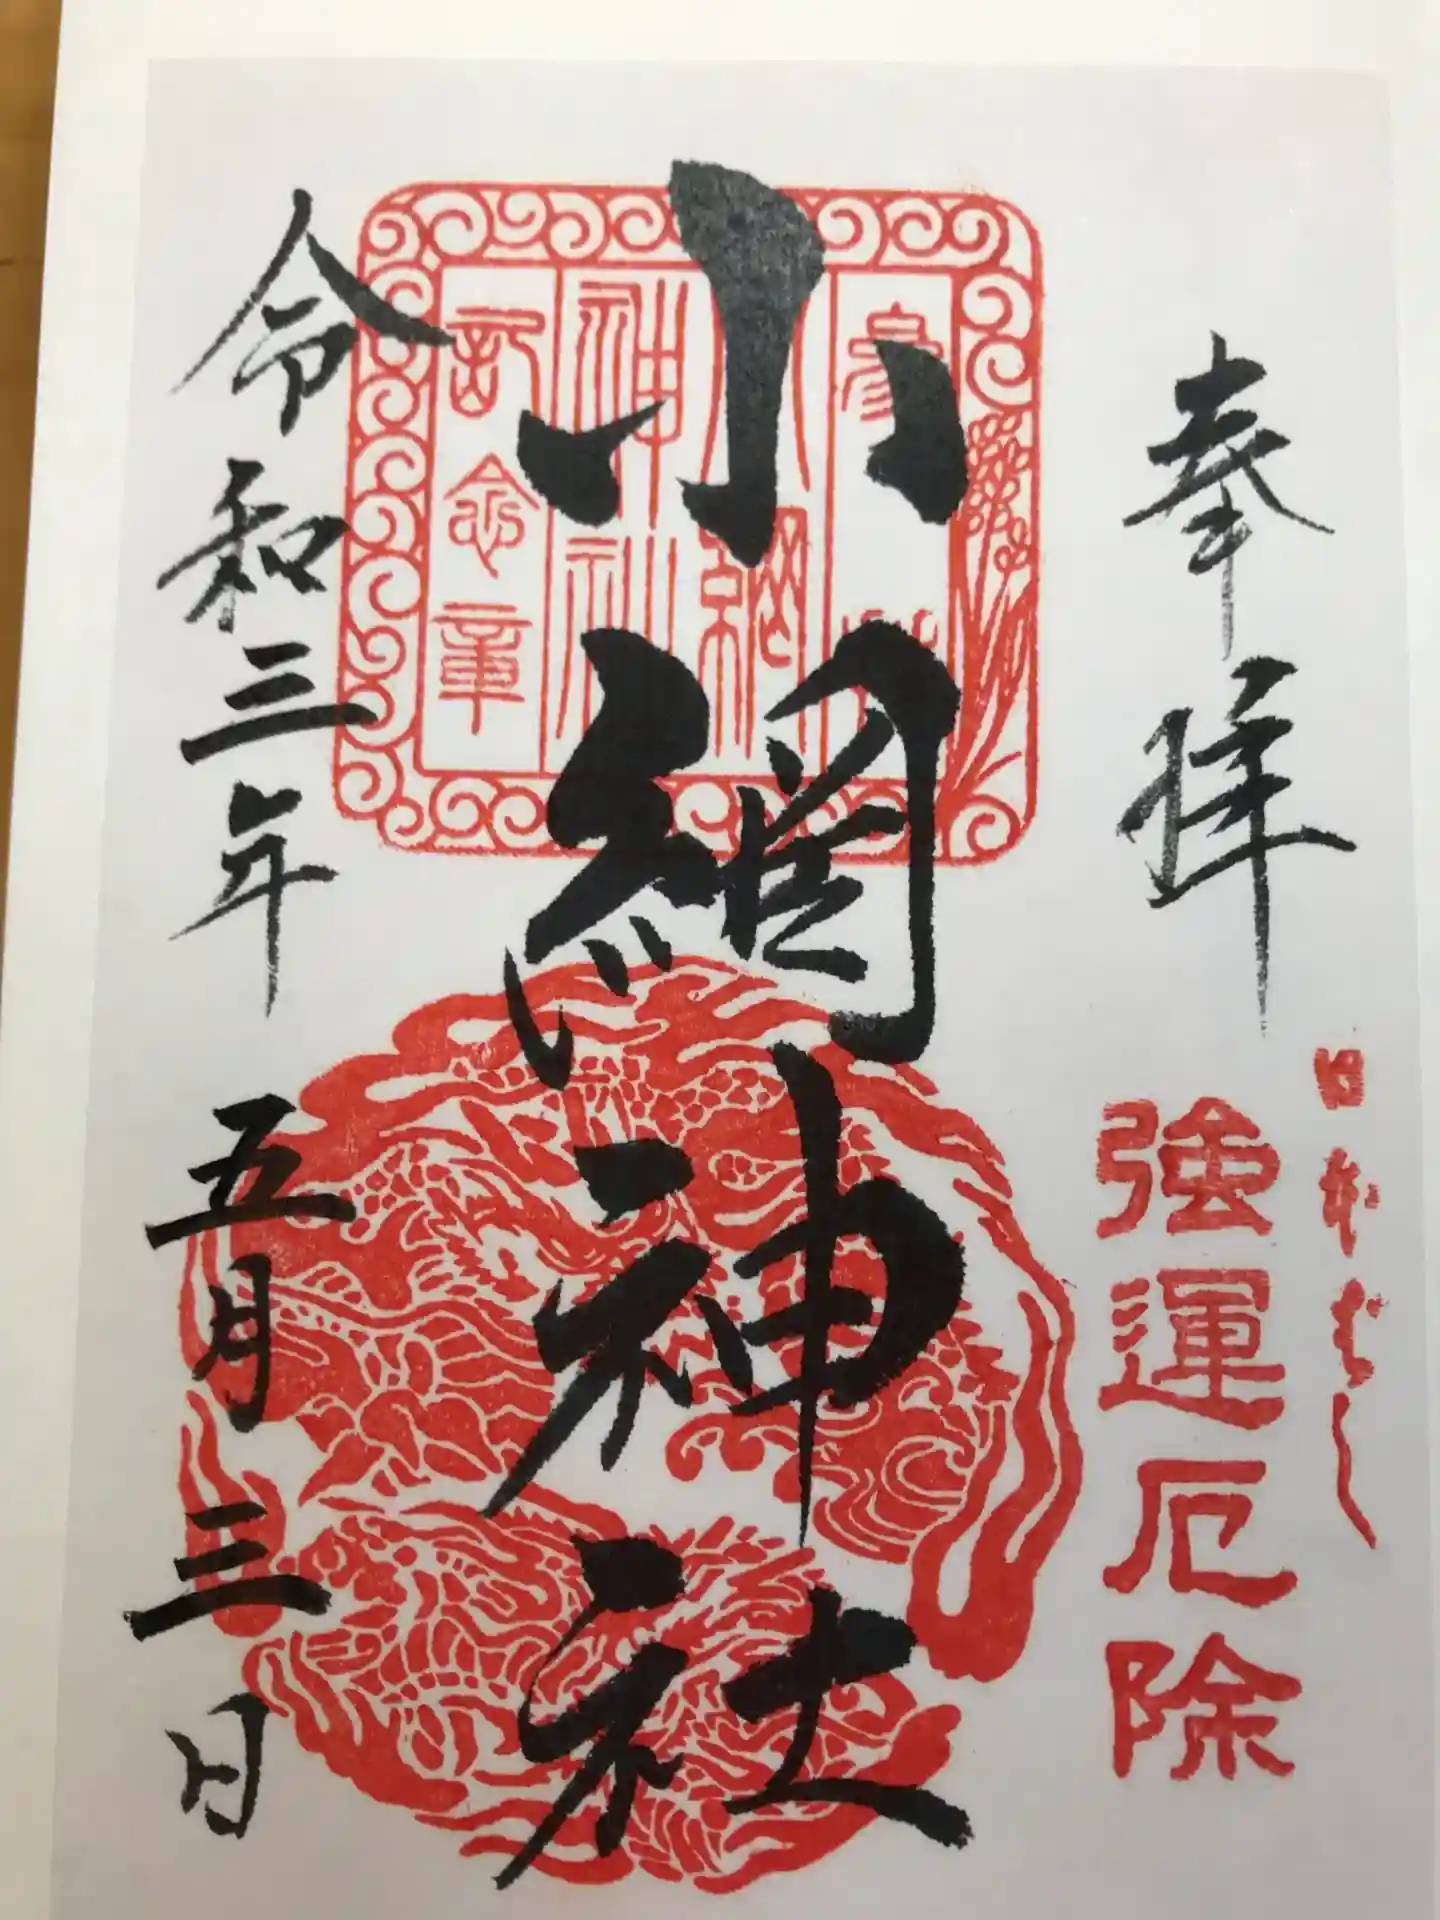 奉拝
日本はし
強運厄除
小網神社
小網神社
記念章
令和三年五月三日